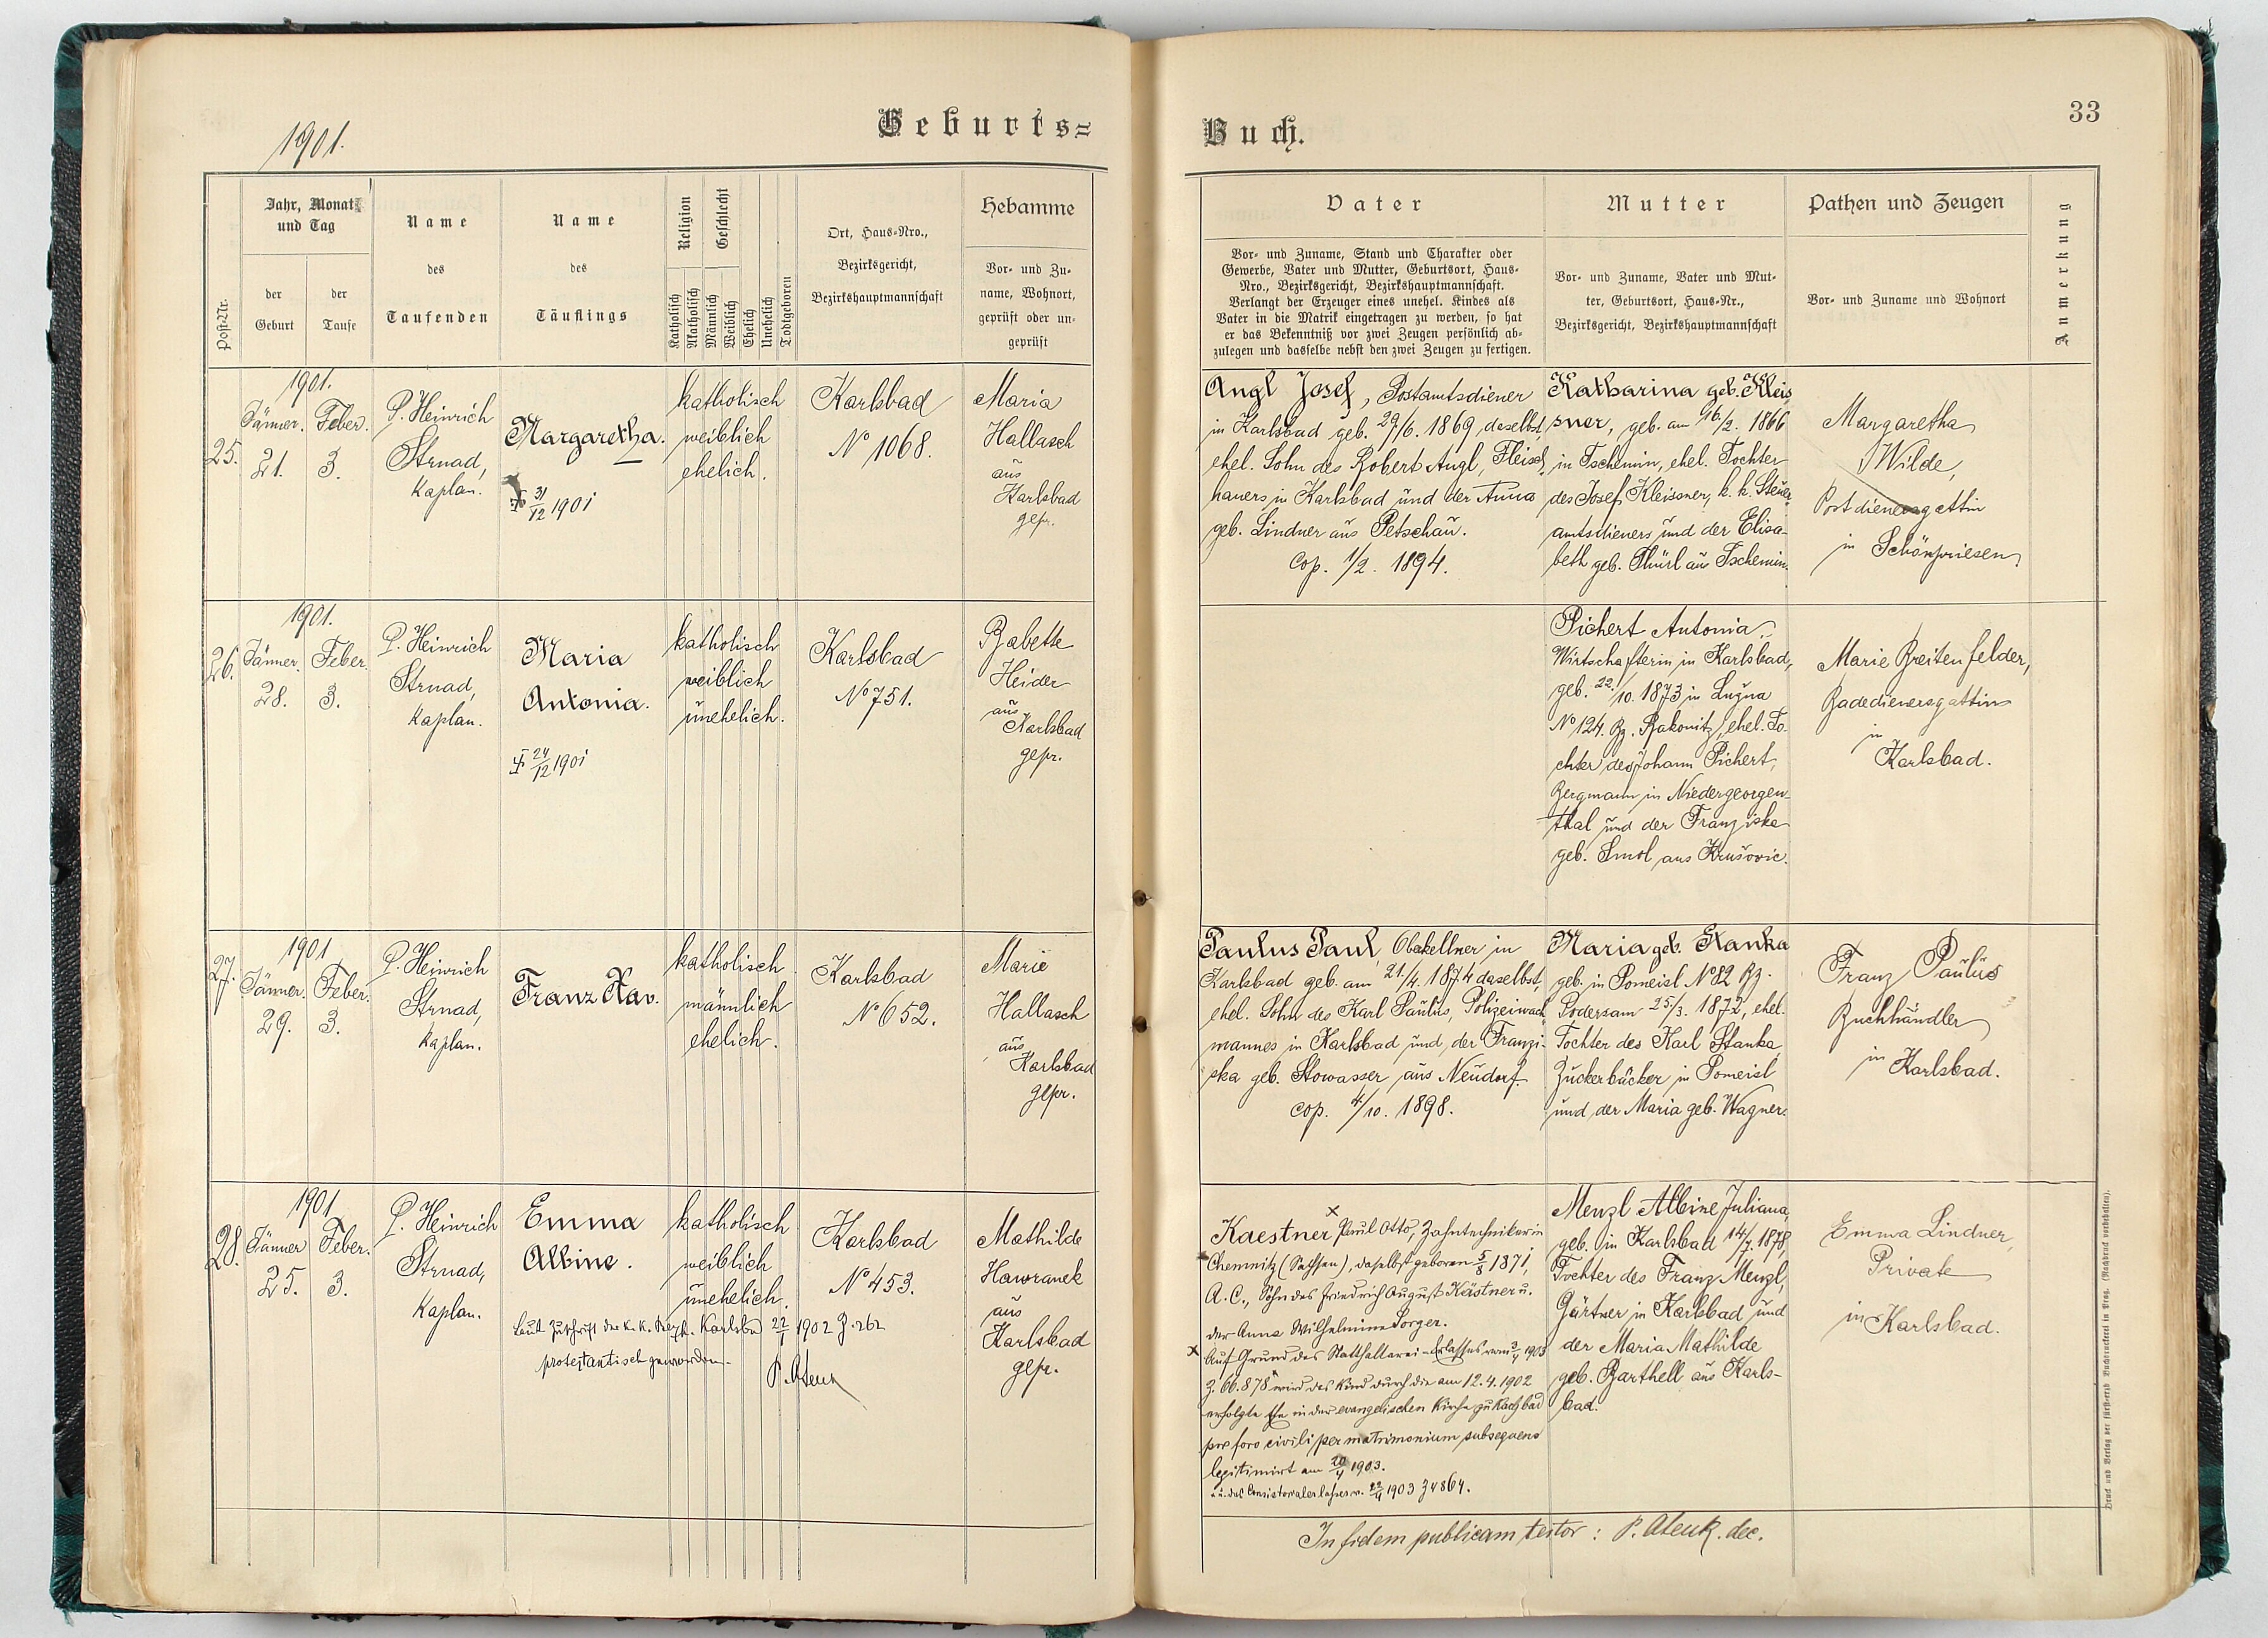 1901.
Geburts=
Jahr, Monat
und Tag
Name
des
Taufenden
Name
des
Täuflings
Religion
Geschlecht
Hebamme
Post-Nr.
der
Geburt
der
Taufe
Katholisch
Akatholisch
Männlich
Weiblich
Ehelich
Unehelich
Todtgeboren
Ort, Haus-Nro.,
Bezirksgericht,
Bezirkshauptmannschaft
Vor- und Zu-
name, Wohnort,
geprüft oder un-
geprüft
25.
1901.
Jänner. Feber.
21. 3.
P. Heinrich
Strnad,
Kaplan.
Margaretha.
31/12 1901
katholisch
weiblich
ehelich.
Karlsbad
No 1068.
Maria
Hallasch
aus
Karlsbad
gepr.
26.
1901.
Jänner. Feber.
28. 3.
P. Heinrich
Strnad,
Kaplan.
Maria
Antonia.
24/12 1901
katholisch
weiblich
ünehelich.
Karlsbad
No 751.
Babette
Heider
aus
Karlsbad
gepr.
27.
1901
Jänner. Feber.
29. 3.
P. Heinrich
Strnad,
Kaplan.
Franz Xav.
katholisch
männlich
ehelich.
Karlsbad
No 652.
Marie
Hallasch
aus
Karlsbad
gepr.
28.
1901
Jänner Feber.
25. 3.
P. Heinrich
Strnad,
Kaplan.
Emma
Albine.
katholisch
weiblich
ünehelich.
Laut Zuschrift der k. k. Bezh. Karlsbad 1902 Z. 262
protestantisch geworden.
Karlsbad
No 453.
Mathilde
Hawranek
aus
Karlsbad
gepr.
Buch.
33
Vater
Mutter
Pathen und Zeugen
Anmerkung
Vor- und Zuname, Stand und Charakter oder
Gewerbe, Vater und Mutter, Geburtsort, Haus-
Nro., Bezirksgericht, Bezirkshauptmannschaft.
Verlangt der Erzeuger eines unehel. Kindes als
Vater in die Matrik eingetragen zu werden, so hat
er das Bekenntniß vor zwei Zeugen persönlich ab-
zulegen und dasselbe nebst den zwei Zeugen zu fertigen.
Vor- und Zuname, Vater und Mut-
ter, Geburtsort, Haus-Nr.,
Bezirksgericht, Bezirkshauptmannschaft
Vor- und Zuname und Wohnort
Angl Josef, Postamtsdiener
in Karlsbad geb. 29/6. 1869, daselbst,
ehel. Sohn des Robert Angl, Fleisch-
hauers in Karlsbad und der Anna
geb. Lindner aus Petschau.
cop. 1/2. 1894.
Katharina geb. Kleis
sner, geb. am 16/2. 1866
in Tschemin, ehel. Tochter
des Josef Kleissner, k. k. Steuer
amtsdieners und der Elisa-
beth geb. Thürl aus Tschemin.
Margaretha
Wilde,
Postdienersgattin
in Schönpriesen
Pichert Antonia,
Wirtschafterin in Karlsbad,
geb. 22./10. 1873 in Lužna
No 124. Bz. Rakonitz, ehel. To-
chter des Johann Pichert,
Bergmann in Niedergeorgen-
thal und der Franziska
geb. Smol aus Krušovic.
Marie Breitenfelder,
Badedienersgattin
in
Karlsbad.
Paulus Paul, Oberkellner in
Karlsbad geb. am 21./4. 1874 daselbst,
ehel. Sohn des Karl Paulus, Polizeiwach
mannes in Karlsbad und der Franzi-
ska geb. Stowasser aus Neudorf.
cop. 4/10. 1898.
Maria geb. Stanka
geb. in Pomeisl No 82 Bz.
Podersam 25/3. 1872, ehel.
Tochter des Karl Stanka
Zuckerbäcker in Pomeisl
und der Maria geb. Wagner.
Franz Paulus
Buchhändler
in Karlsbad.
x
Kaestner Paul Otto, Zahntechniker in
Chemnitz (Sachsen), daselbst geboren 5/8 1871,
A.C., Sohn des Friedrich August Kästner u.
der Anna Wilhelmine Sorger.
x Auf Grund des Statthalterei-Erlasses vom 3/4 1903
Z. 66.878 wird das Kind durch die am 12.4.1902
erfolgte Ehe in der evangelischen Kirche zu Karlsbad
pro foro civili per matrimonium subsequens
legitimirt am 20/4 1903.
u. d. Consistorialerlasses v. 22/4 1903 Z 4864.
Menzl Albine Juliana,
geb. in Karlsbad 14/7. 1878,
Tochter des Franz Menzl,
Gärtner in Karlsbad und
der Maria Mathilde
geb. Barthell aus Karls-
bad.
Emma Lindner,
Private
in Karlsbad.
In fidem publicam testor: dec.
Druck und Verlag der fürsterzb. Buchdruckerei in Prag. (Nachdruck vorbehalten).